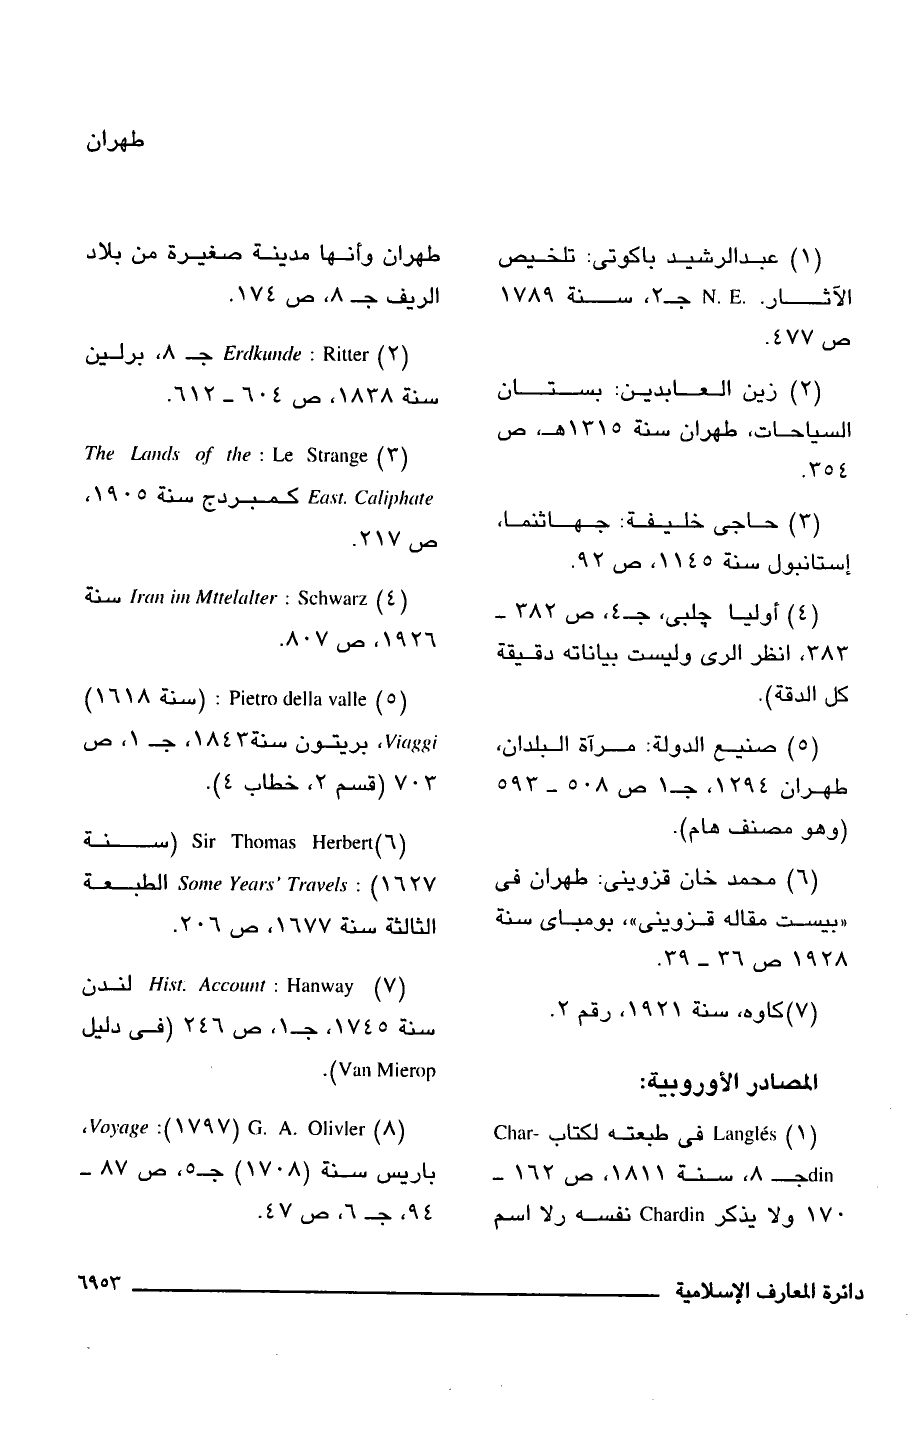 طهران
(١) عبدالرشيد باكوتى: تلخيص
الآثار. .N. E جـ٢، سنة ١٧٨٩
ص ٤٧٧.
(٢) زين العابدين: بستان
السياحات، طهران سنة ١٣١٥هـ، ص
٣٥٤.
(٣) حاجى خليفة: جهاثنما،
إستانبول سنة ١١٤٥، ص ٩٢.
(٤) أوليا چلبى، جـ٤، ص ٣٨٢ _
٣٨٣، انظر الرى وليست بياناته دقيقة
كل الدقة).
(٥) صنيع الدولة: مرآة البلدان،
طهران ١٢٩٤، جـ١ ص ٥٠٨ _ ٥٩٣
(وهو مصنف هام).
(٦) محمد خان قزوينى: طهران فى
«بيست مقاله قزوينى»، بومباى سنة
١٩٢٨ ص ٣٦ _ ٣٩.
(٧)كاوه، سنة ١٩٢١، رقم ٢.
المصادر الأوروبية:
(١) Langlés فى طبعته لكتاب Char-
dinجـ ٨، سنة ١٨١١، ص ١٦٢ _
١٧٠ ولا يذكر Chardin نفسه رلا اسم
طهران وأنها مدينة صغيرة من بلاد
الريف جـ ٨، ص ١٧٤.
(٢) Erdkunde : Ritter جـ ٨، برلين
سنة ١٨٣٨، ص ٦٠٤ _ ٦١٢.
(٣) The Lands of the : Le Strange
East. Caliphate كمبردج سنة ١٩٠٥،
ص ٢١٧.
(٤) Iran im Mttelalter : Schwarz سنة
١٩٢٦، ص ٨٠٧.
(٥) Pietro della valle : (سنة ١٦١٨)
Viaggi، بريتون سنة١٨٤٣، جـ ١، ص
٧٠٣ (قسم ٢، خطاب ٤).
(٦)Sir Thomas Herbert (سنة
١٦٢٧) : Some Years' Travels الطبعة
الثالثة سنة ١٦٧٧، ص ٢٠٦.
(٧) Hist. Account : Hanway لندن
سنة ١٧٤٥، جـ١، ص ٢٤٦ (فى دليل
Van Mierop).
(٨) G. A. Olivler (١٧٩٧): Voyage،
باريس سنة (١٧٠٨) جـ٥، ص ٨٧ _
٩٤، جـ ٦، ص ٤٧.
دائرة المعارف الإسلامية ٦٩٥٣